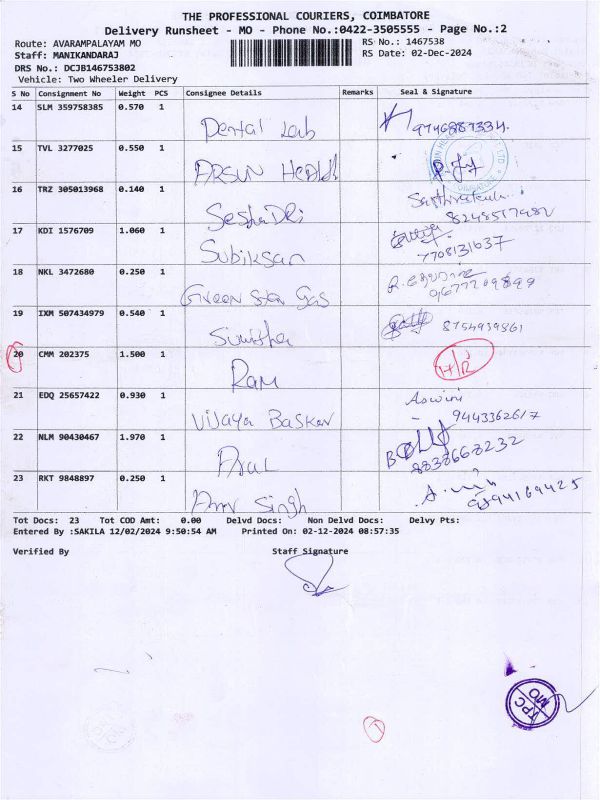 THE PROFESSIONAL COURIERS, COIMBATORE
Delivery Runsheet - MO - Phone No.:0422-3505555 - Page No.:2
Route: AVARAMPALAYAM MO RS No.: 1467538
Staff: MANIKANDARAJ RS Date: 02-Dec-2024
DRS No.: DCJB146753802
Vehicle: Two Wheeler Delivery
S No Consignment No Weight PCS Consignee Details Remarks Seal & Signature
14 SLM 359758385 0.570 1
Dental Lab
15 TVL 3277025 0.550 1
ARSUN Health
16 TRZ 305013968 0.140 1
SeshaDri 8248517982
17 KDI 1576709 1.060 1
Subiksan 7708131637
18 NKL 3472680 0.250 1
Green Star Gas
19 IXM 507434979 0.540 1
Sunitha 8754939861
20 CMM 202375 1.500 1
Ram
21 EDQ 25657422 0.930 1 Aswini
Vijaya Baskar 9443362617
22 NLM 90430467 1.970 1
8838668232
23 RKT 9848897 0.250 1
Singh
Tot Docs: 23 Tot COD Amt: 0.00 Delvd Docs: Non Delvd Docs: Delvy Pts:
Entered By :SAKILA 12/02/2024 9:50:54 AM Printed On: 02-12-2024 08:57:35
Verified By Staff Signature
TPC
MO